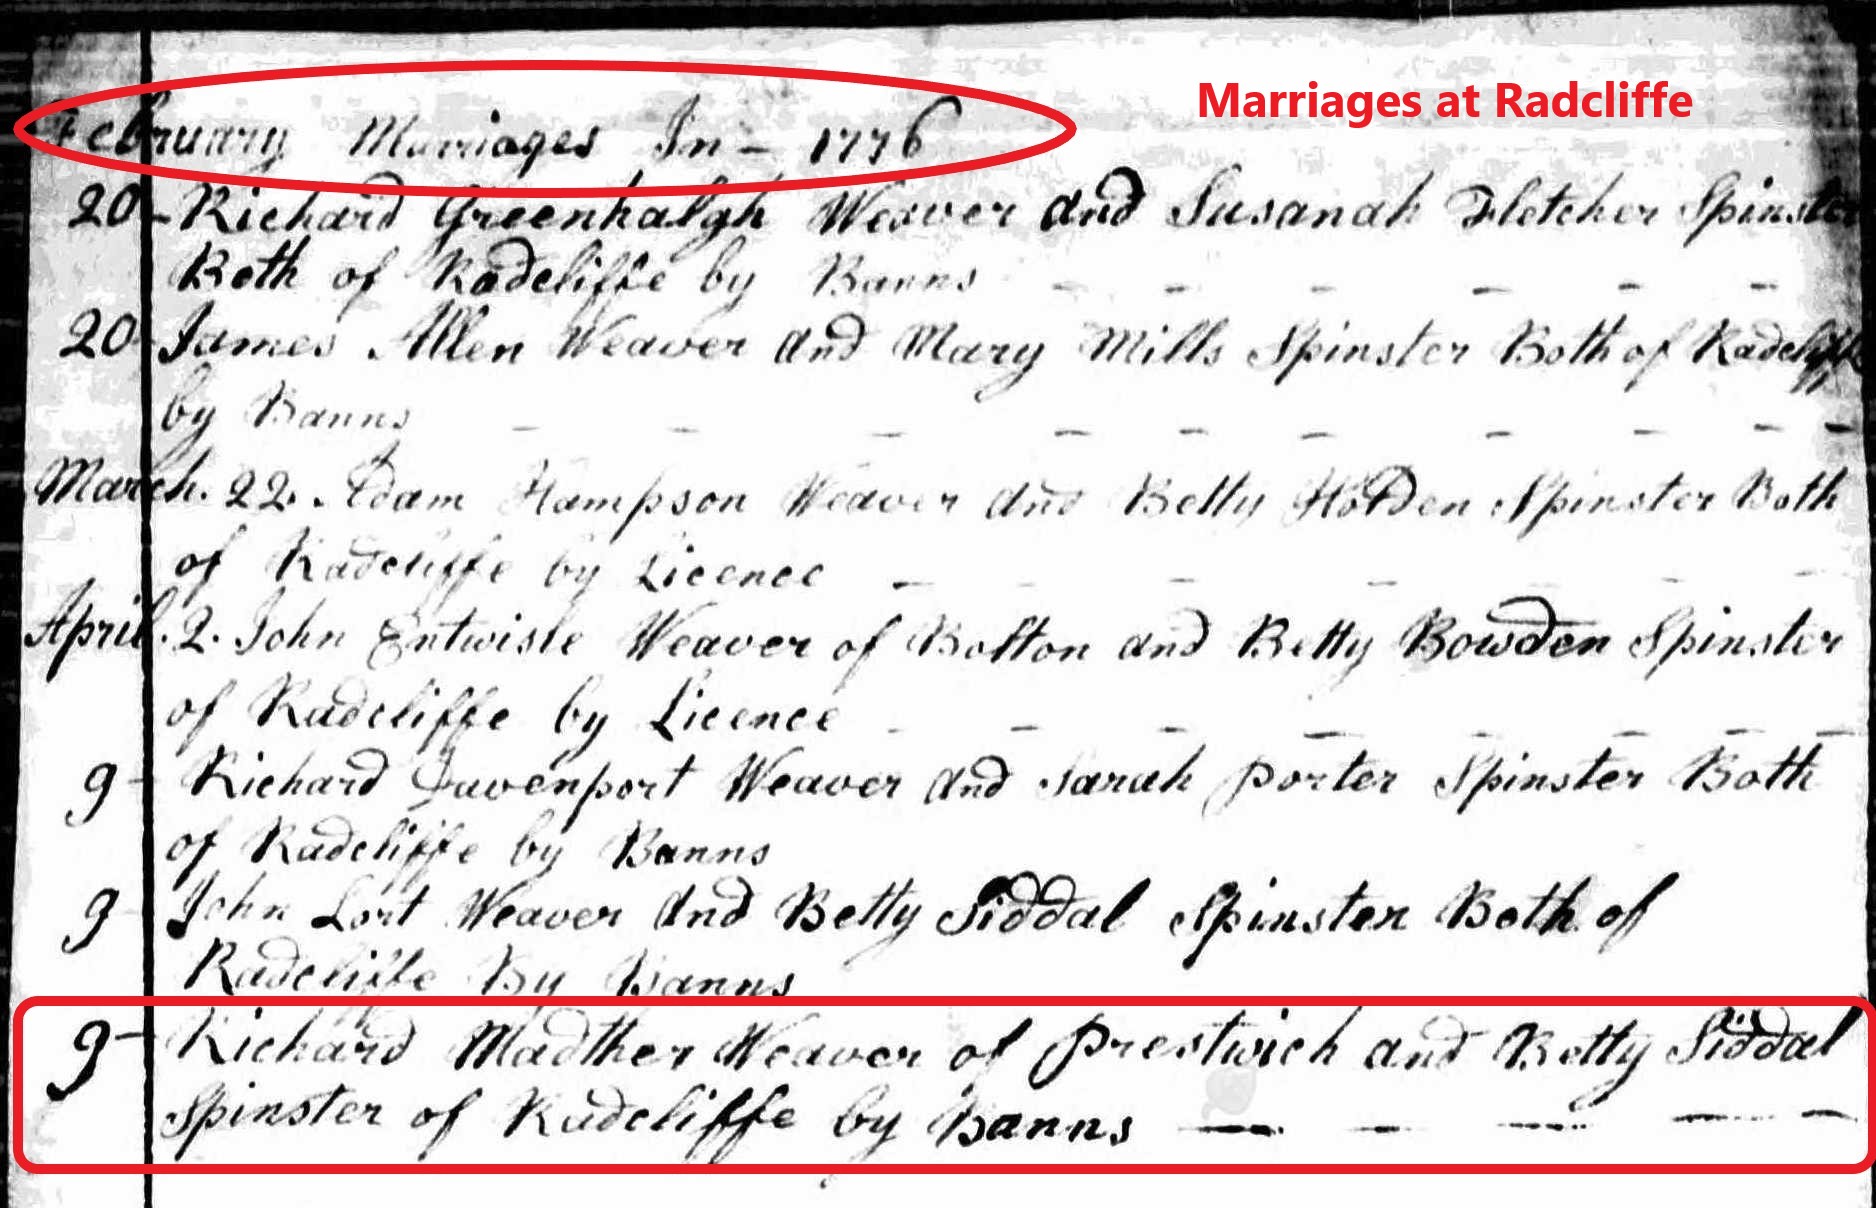 Marriages at Radcliffe
February Marriages In - 1776
20 - Richard Greenhalgh Weaver and Susanah Fletcher Spinster
Both of Radcliffe by Banns - - - - - -
20 James Allen Weaver and Mary Mills Spinster Both of Radcliffe
by Banns - - - - - - - - - -
March. 22. Adam Hampson Weaver and Betty Holden Spinster Both
of Radcliffe by Licence - - - - - - -
April. 2. John Entwisle Weaver of Bolton and Betty Bowden Spinster
of Radcliffe by Licence - - - - - - - -
9 - Richard Davenport Weaver and Sarah Porter Spinster Both
of Radcliffe by Banns
9 - John Lort Weaver And Betty Siddal Spinster Both of
Radcliffe By Banns
9 - Richard Madther Weaver of Prestwich and Betty Siddal
Spinster of Radcliffe by Banns - - - - -